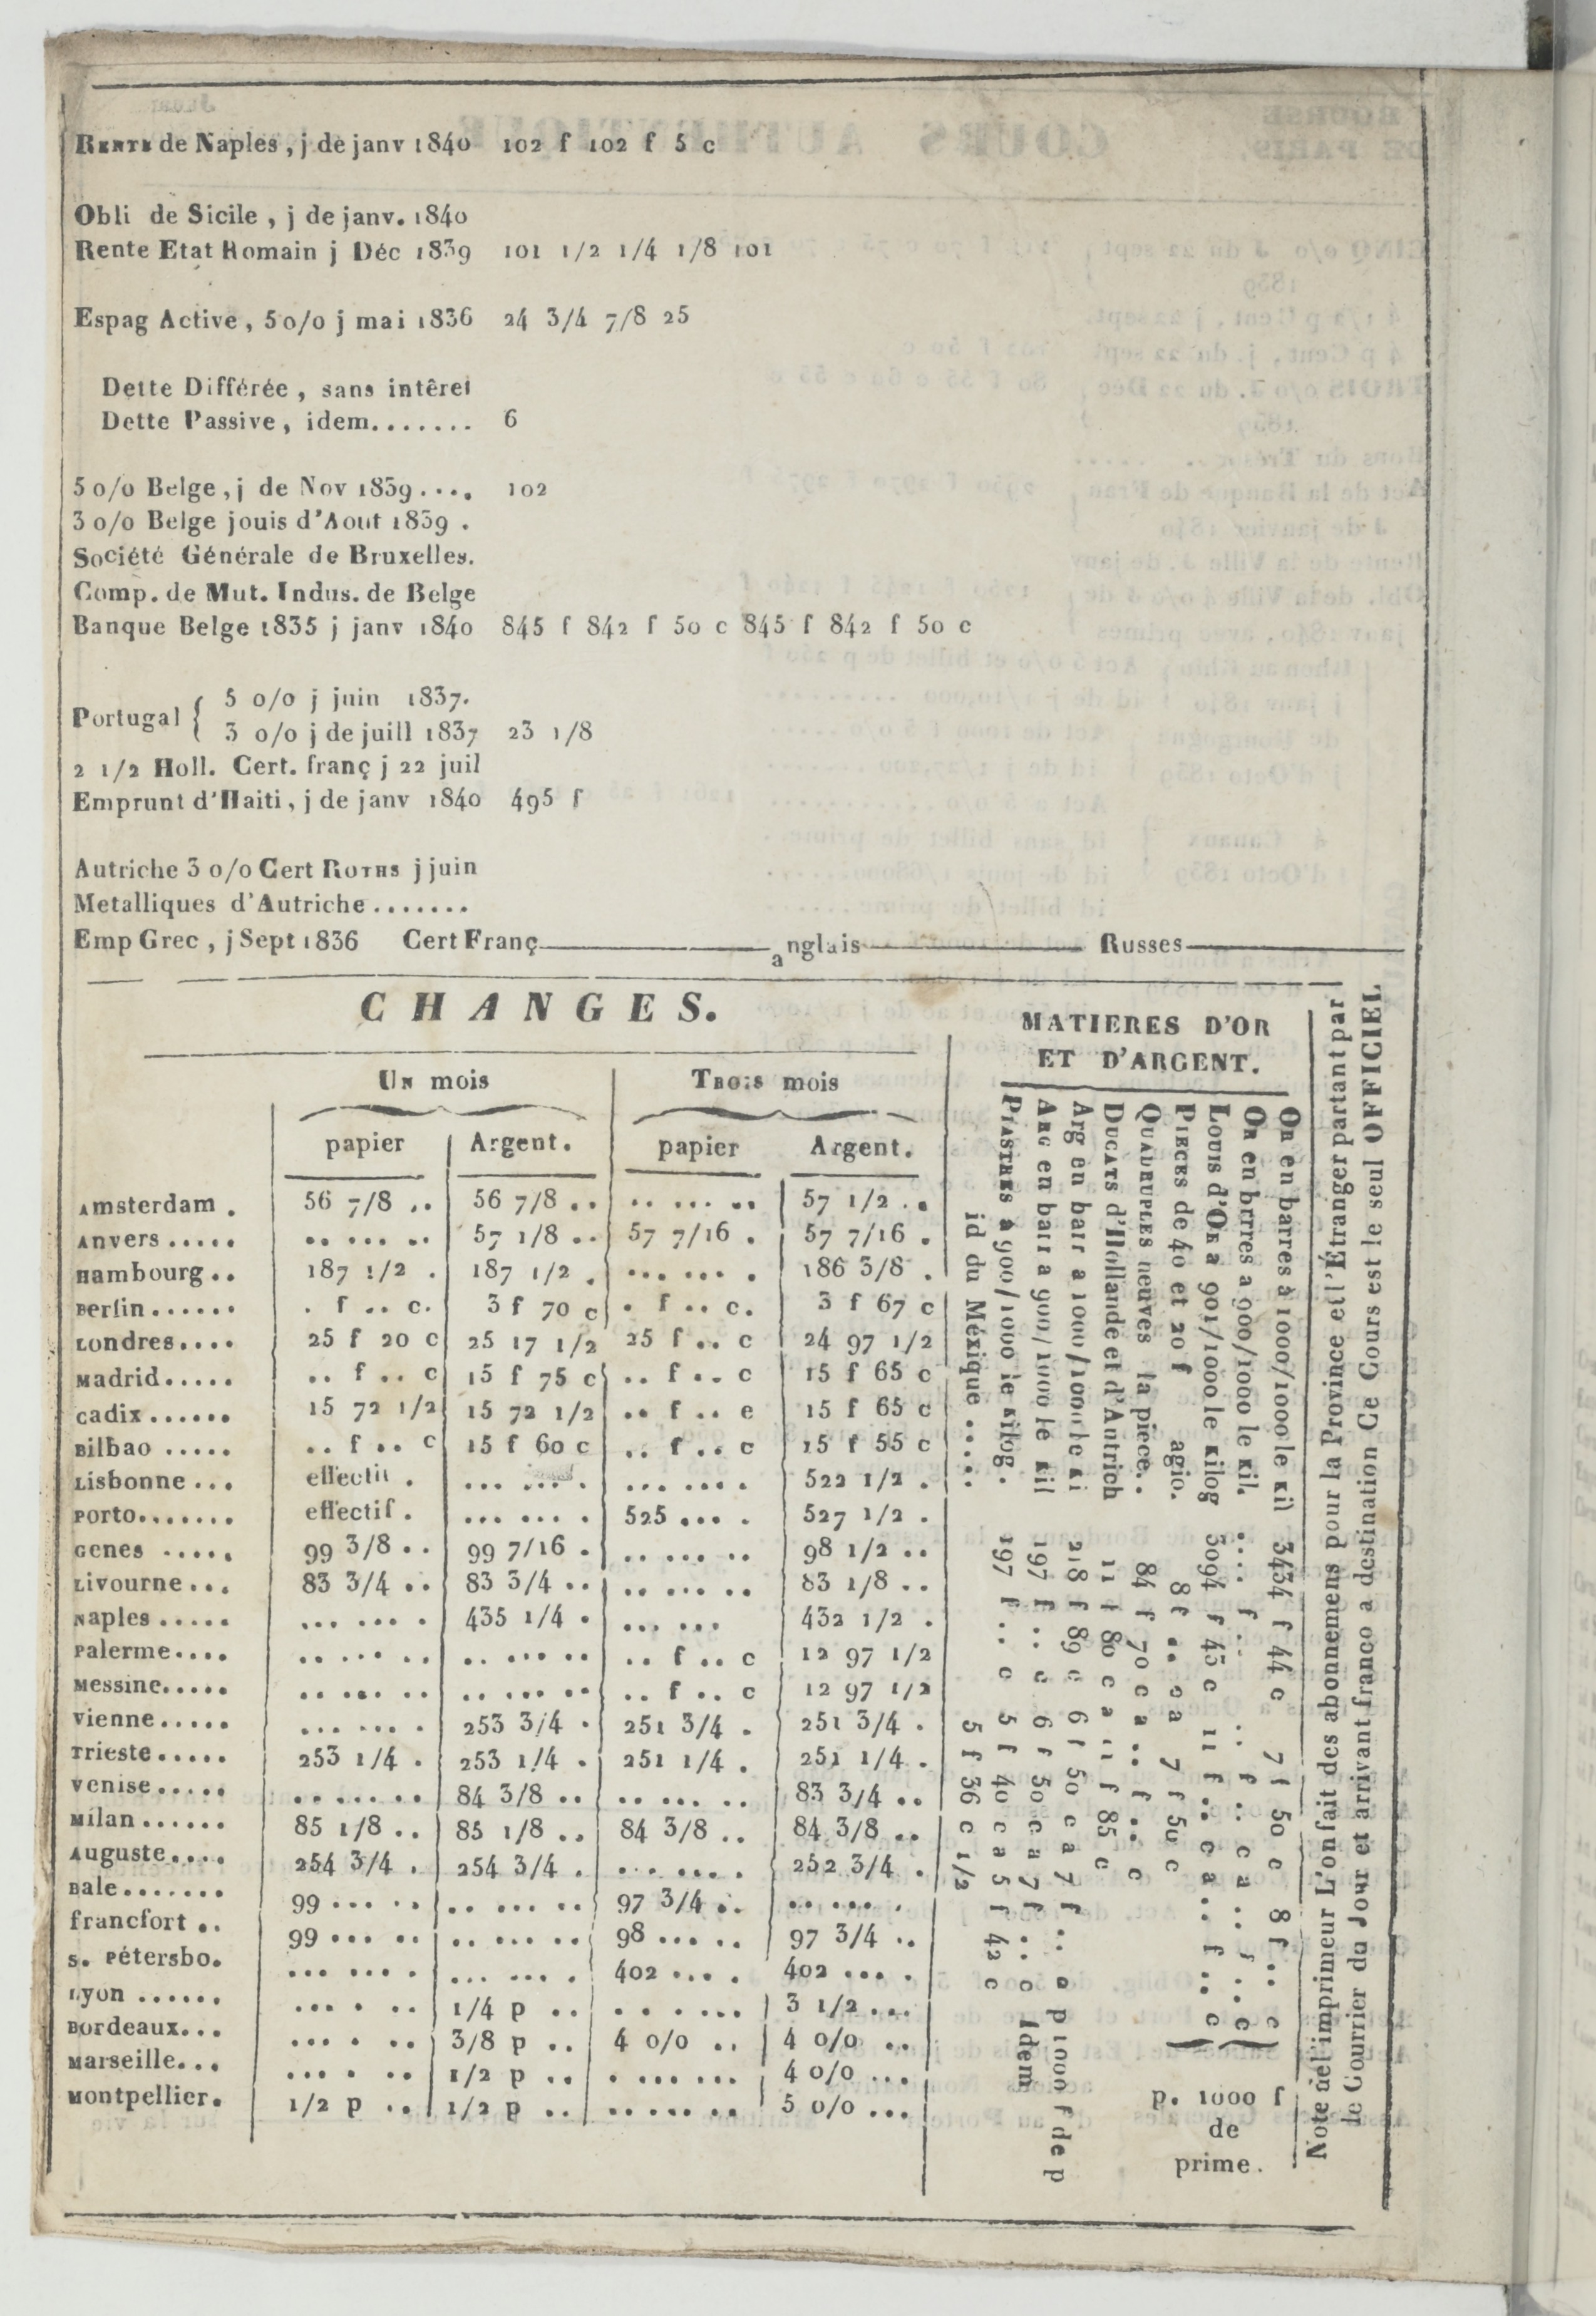 RENTE de Naples, j de janv 1840 102 f 102 f 5 c
Obli de Sicile, j de janv. 1840
Rente Etat Romain j Déc 1839 101 1/2 1/4 1/8 101
Espag Active, 5 o/o j mai 1836 24 3/4 7/8 25
Dette Différée, sans intêret
Dette Passive, idem....... 6
5 o/o Belge, j de Nov 1839.... 102
3 o/o Belge jouis d'Aout 1839 .
Société Générale de Bruxelles.
Comp. de Mut. Indus. de Belge
Banque Belge 1835 j janv 1840 845 f 842 f 50 c 845 f 842 f 50 c
Portugal { 5 o/o j juin 1837.
3 o/o j de juill 1837 23 1/8
2 1/2 Holl. Cert. franç j 22 juil
Emprunt d'Haiti, j de janv 1840 495 f
Autriche 3 o/o Cert ROTHS j juin
Metalliques d'Autriche.......
Emp Grec, j Sept 1836 Cert Franç anglais Russes
CHANGES.
UN mois TROIS mois
papier Argent. papier Argent.
Amsterdam . 56 7/8 .. 56 7/8 .. .. ... .. 57 1/2 ..
Anvers ..... .. ... .. 57 1/8 .. 57 7/16 . 57 7/16 .
Hambourg .. 187 1/2 . 187 1/2 . ... ... . 186 3/8 .
Berlin ...... . f .. c. 3 f 70 c . f .. c. 3 f 67 c
Londres.... 25 f 20 c 25 17 1/2 25 f .. c 24 97 1/2
Madrid..... .. f .. c 15 f 75 c .. f .. c 15 f 65 c
Cadix ...... 15 72 1/2 15 72 1/2 .. f .. e 15 f 65 c
Bilbao ..... .. f .. c 15 f 60 c .. f .. c 15 f 55 c
Lisbonne ... effectif . ... ... . ... ... . 522 1/2 .
Porto....... effectif . ... ... . 525 ... . 527 1/2 .
Genes ..... 99 3/8 .. 99 7/16 . .. ... .. 98 1/2 ..
Livourne ... 83 3/4 .. 83 3/4 .. .. ... .. 83 1/8 ..
Naples ..... ... ... . 435 1/4 . ... ... 432 1/2 .
Palerme.... .. ... .. .. ... .. .. f .. c 12 97 1/2
Messine..... .. ... .. .. ... .. .. f .. c 12 97 1/2
Vienne..... ... ... . 253 3/4 . 251 3/4 . 251 3/4 .
Trieste..... 253 1/4 . 253 1/4 . 251 1/4 . 251 1/4 .
Venise..... .. ... .. 84 3/8 .. .. ... .. 83 3/4 ..
Milan ...... 85 1/8 .. 85 1/8 .. 84 3/8 .. 84 3/8 ..
Auguste.... 254 3/4 . 254 3/4 . ... ... . 252 3/4 .
Bale....... 99 ... .. .. ... .. 97 3/4 .. .. ... .
francfort .. 99 ... .. .. ... .. 98 ... .. 97 3/4 ..
S. Pétersbo. ... ... . ... ... . 402 ... . 402 ... .
Lyon ...... ... . .. 1/4 p .. . . . ... 3 1/2 ...
Bordeaux... ... . .. 3/8 p .. 4 o/o .. 4 o/o ..
Marseille... ... . .. 1/2 p .. . ... ... 4 o/o ...
Montpellier. 1/2 p .. 1/2 p .. .. ... .. 5 o/o ...
MATIERES D'OR
ET D'ARGENT.
OR en barres à 1000/1000 le Kil 3434 f 44 c 7 f 50 c 8 f .. c
OR en brres a 900/1000 le Kil. .... f .. .. f .. c a .. f .. c
LOUIS d'OR a 901/1000 le Kilog 3094 f 45 c 11 f .. c a .. f .. c
PIECES de 40 et 20 f agio. 8 f .. c a 7 f 50 c
QUADRUPLES neuves la piece. . 84 f 70 c a .. f .. c
DUCATS d'Hollande et d'Autrich 11 f 80 c a 11 f 85 c
Arg en barr a 1000/1000 le Ki 218 f 89 c 6 f 50 c a 7 f .. c p 1000 f de p
ARG en barr a 900/1000 le Kil 197 f .. c 6 f 50 c a 7 f .. c Idem
PIASTRES a 900/1000 le Kilog . 197 f .. c 5 f 40 c a 5 f 42 c
id du Méxique ..... 5 f 36 c 1/2
p. 1000 f
de
prime.
Note de l'imprimeur L'on fait des abonnemens pour la Province et l'Étranger partant par
le Courrier du Jour et arrivant franco a destination Ce Cours est le seul OFFICIEL